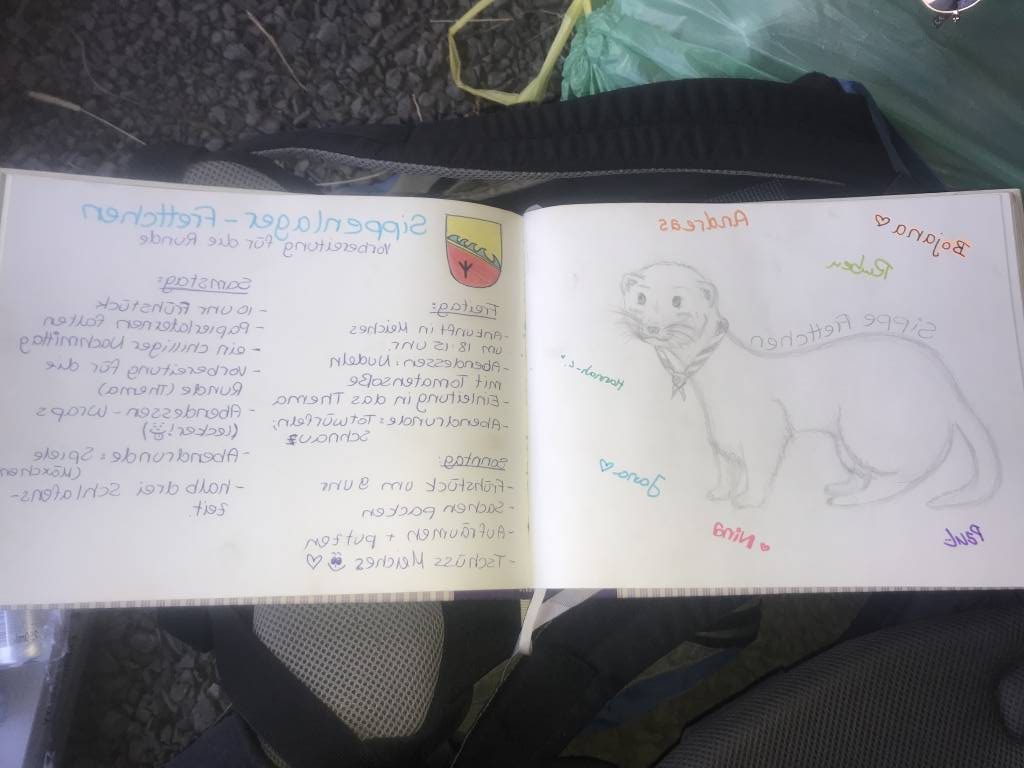 Bojana ♡
Andreas
Ruben
Sippe Frettchen
Jana ♡
Nina
Paul
Sippenlager-Frettchen
Vorbereitung für die Runde
Freitag:
-Ankunft in Meiches
um 18:15 Uhr.
-Abendessen: Nudeln
mit Tomatensoße
-Einleitung in das Thema
-Abendrunde: Totwürfeln,
Schnauz
Sonntag:
-Frühstück um 9 Uhr
-Sachen packen
-Aufräumen + putzen
-Tschüss Meiches ♡
Samstag:
- 10 Uhr Frühstück
- Papierlaternen falten
- ein chilliger Nachmittag
- Vorbereitung für die
Runde (Thema)
- Abendessen - Wraps
(lecker!)
- Abendrunde: Spiele
- halb drei Schlafens-
zeit